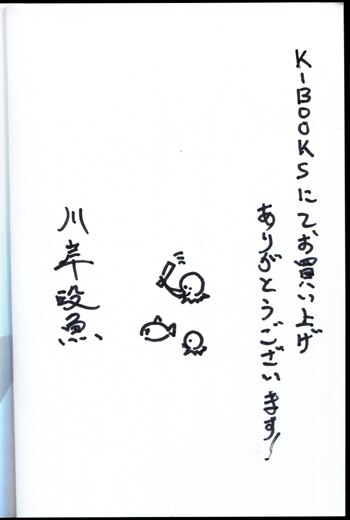 K-BOOKSにて、お買い上げ
ありがとうございます!
川岸殴魚